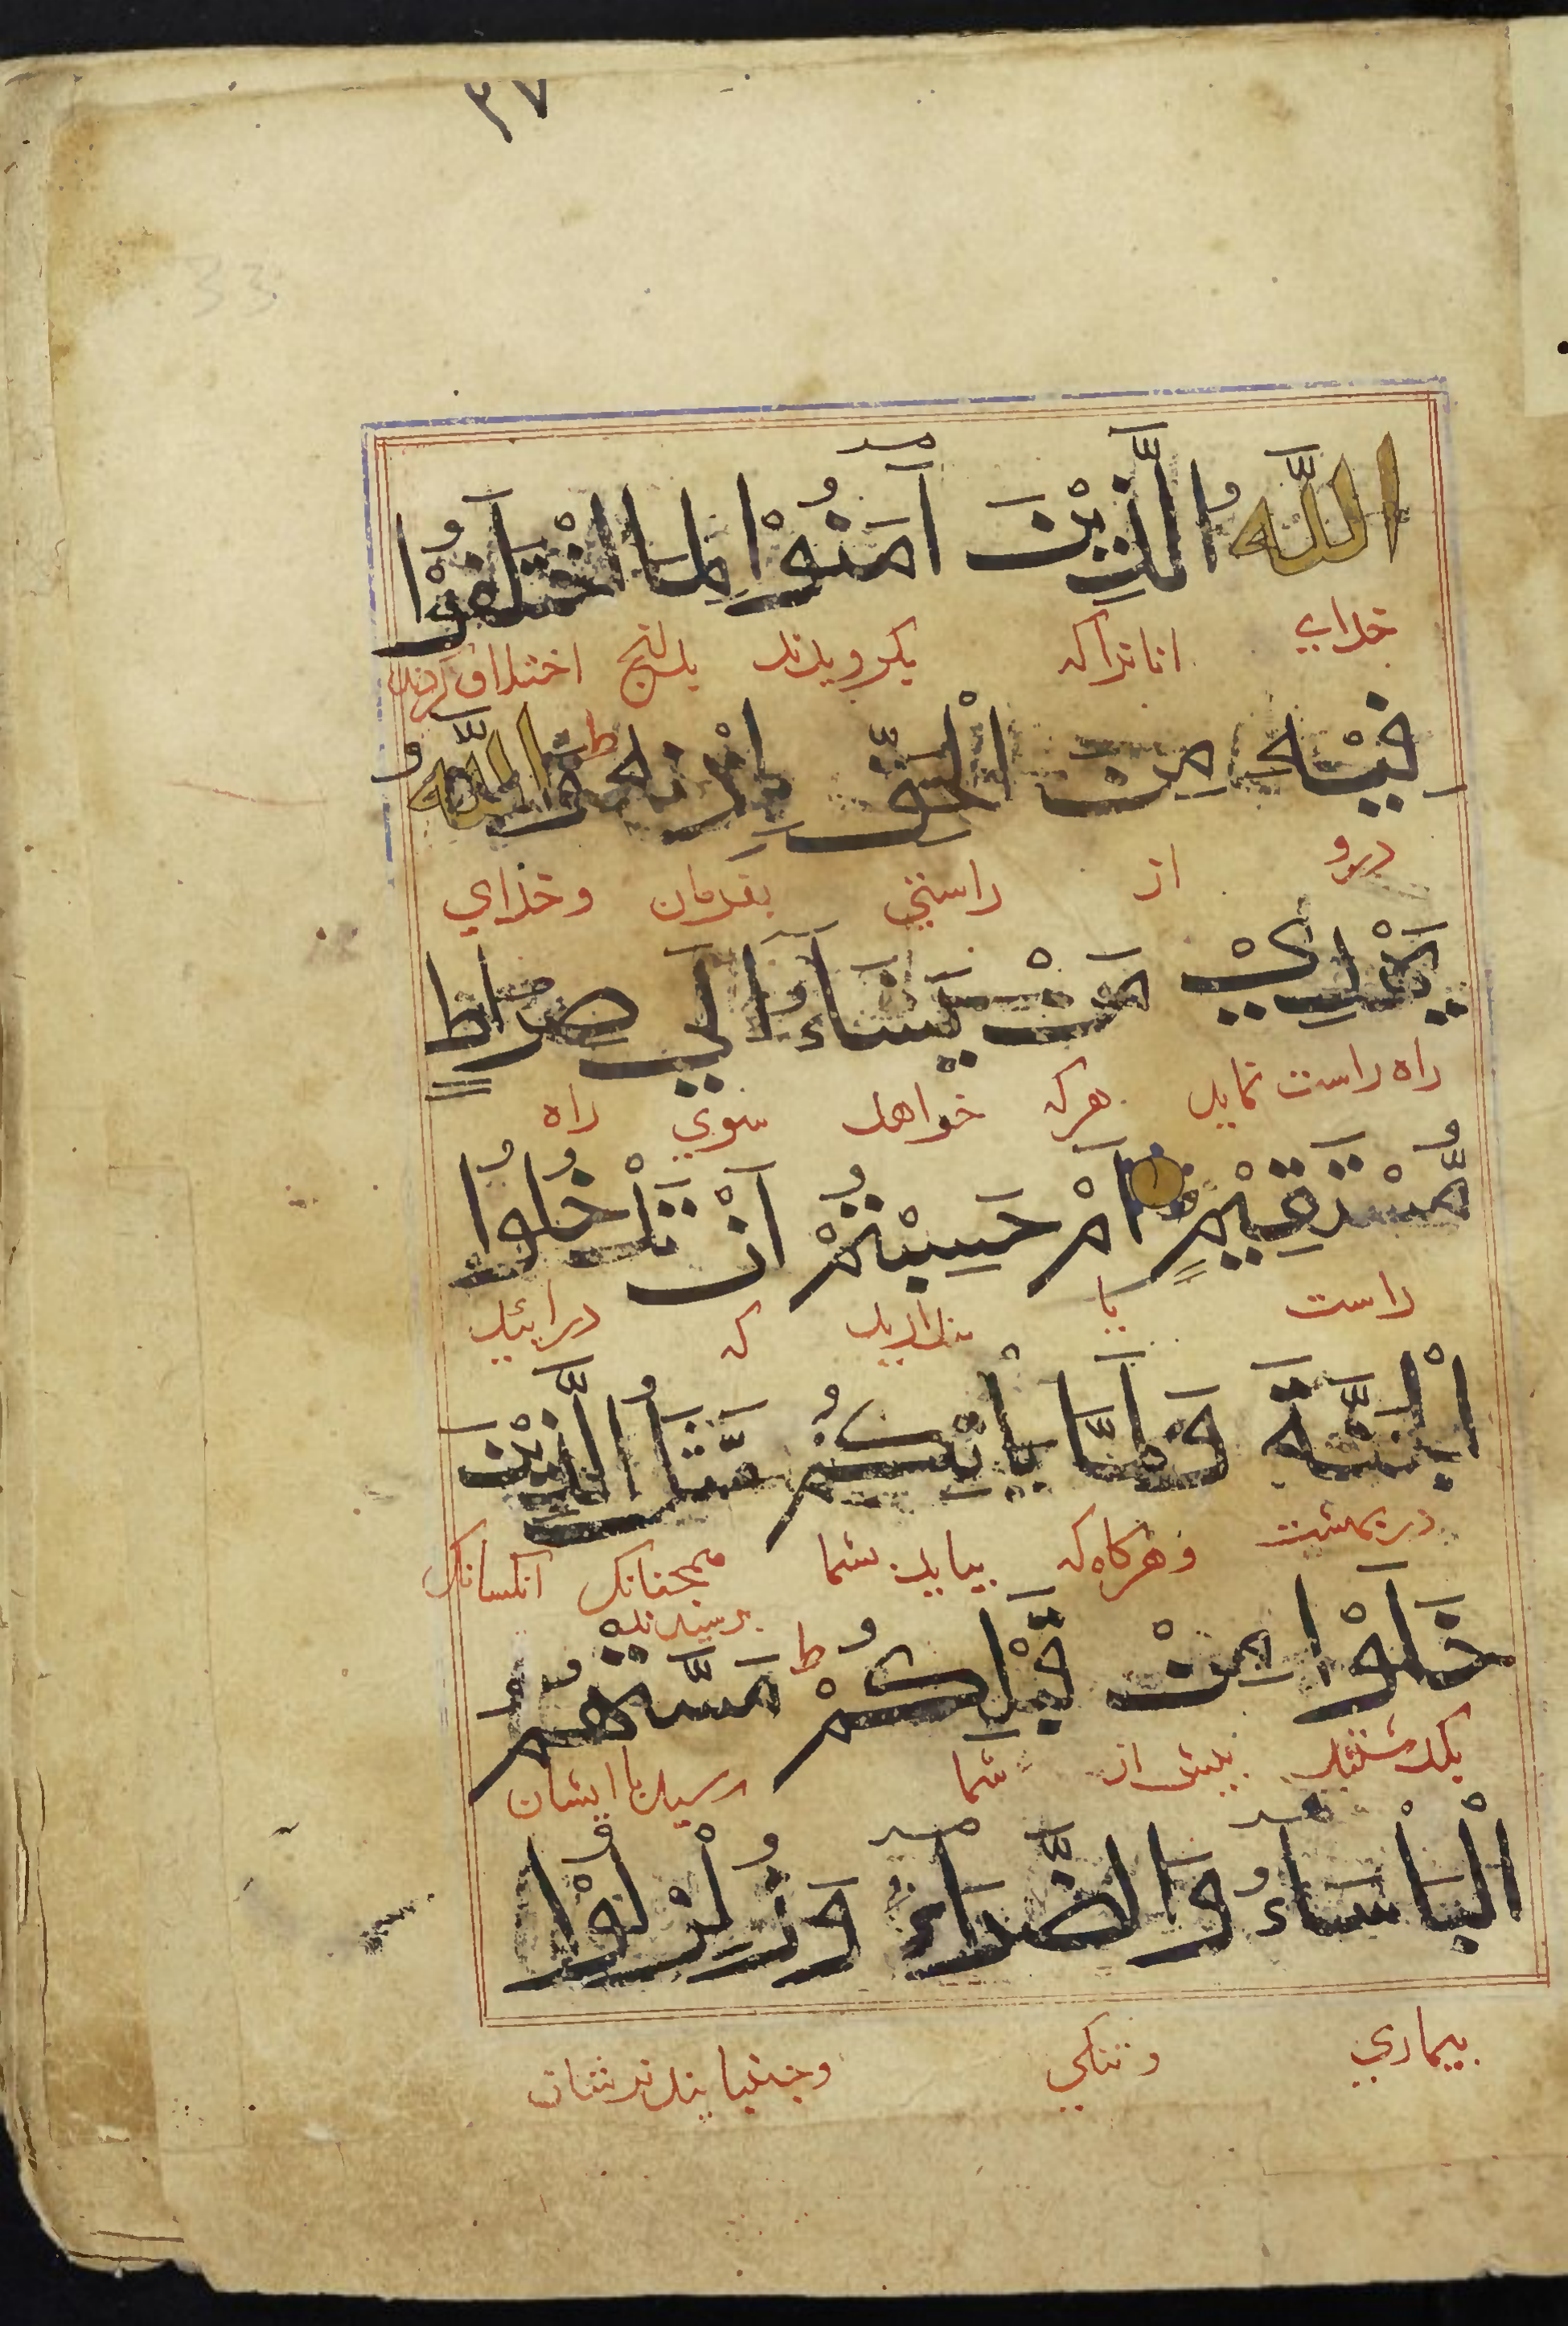 ٣٧
33
اللهُ الَّذِيْنَ آمَنُوْا لِمَا اخْتَلَفُوْا
خدای انانراکه بکرویدند بدانچ اختلاف کردند
فِيْهِ مِنَ الْحَقِّ بِاِذْنِهٖ ط وَاللهُ
درو از راستی بفرمان وخدای
يَهْدِيْ مَنْ يَشَاءُ اِلَي صِرَاطٍ
راه راست نماید هرکه خواهد سوي راه
مُّسْتَقِيْمٍ اَمْ حَسِبْتُمْ اَنْ تَدْخُلُوْا
راست یا پنداریدکه درائید
الْجَنَّةَ وَلَمَّا يَاْتِكُمْ مَّثَلُ الَّذِيْنَ
در بهشت وهرکاه که بیاید شما همچنانک انکسانک
خَلَوْا مِنْ قَبْلِكُمْ ط مَسَّتْهُمُ
بکذشتند پیش از شما رسید با ایشان
الْبَاْسَاءُ وَالضَّرَّاءُ وَزُلْزِلُوْا
بیماري وتنکي وجنبانیدندشان